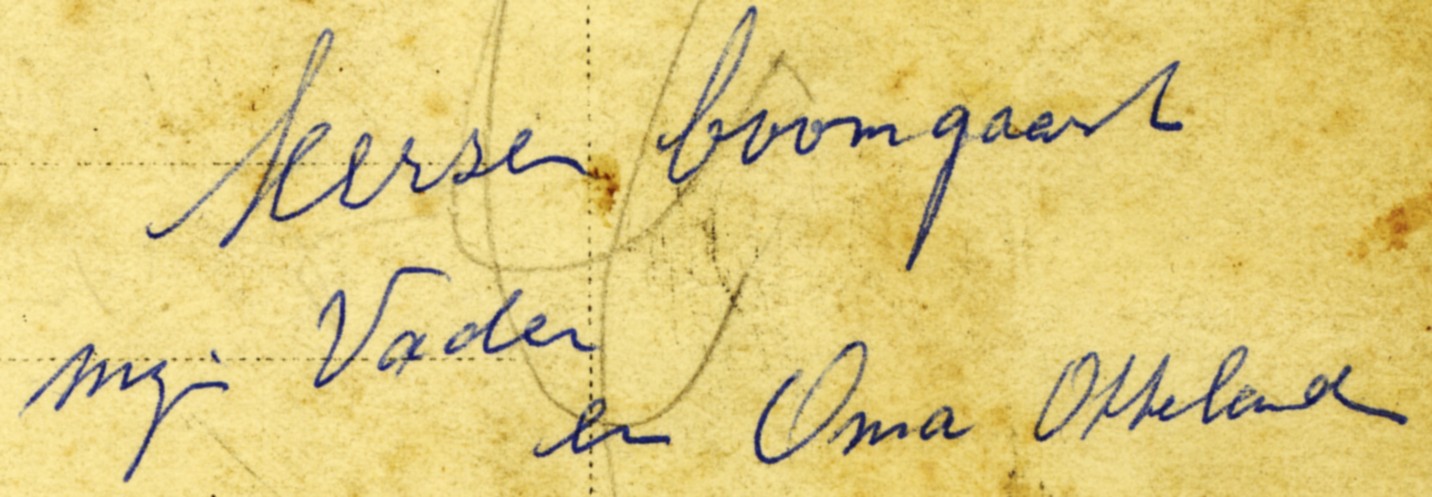 kersen boomgaard
mijn Vader
en Oma Otteland